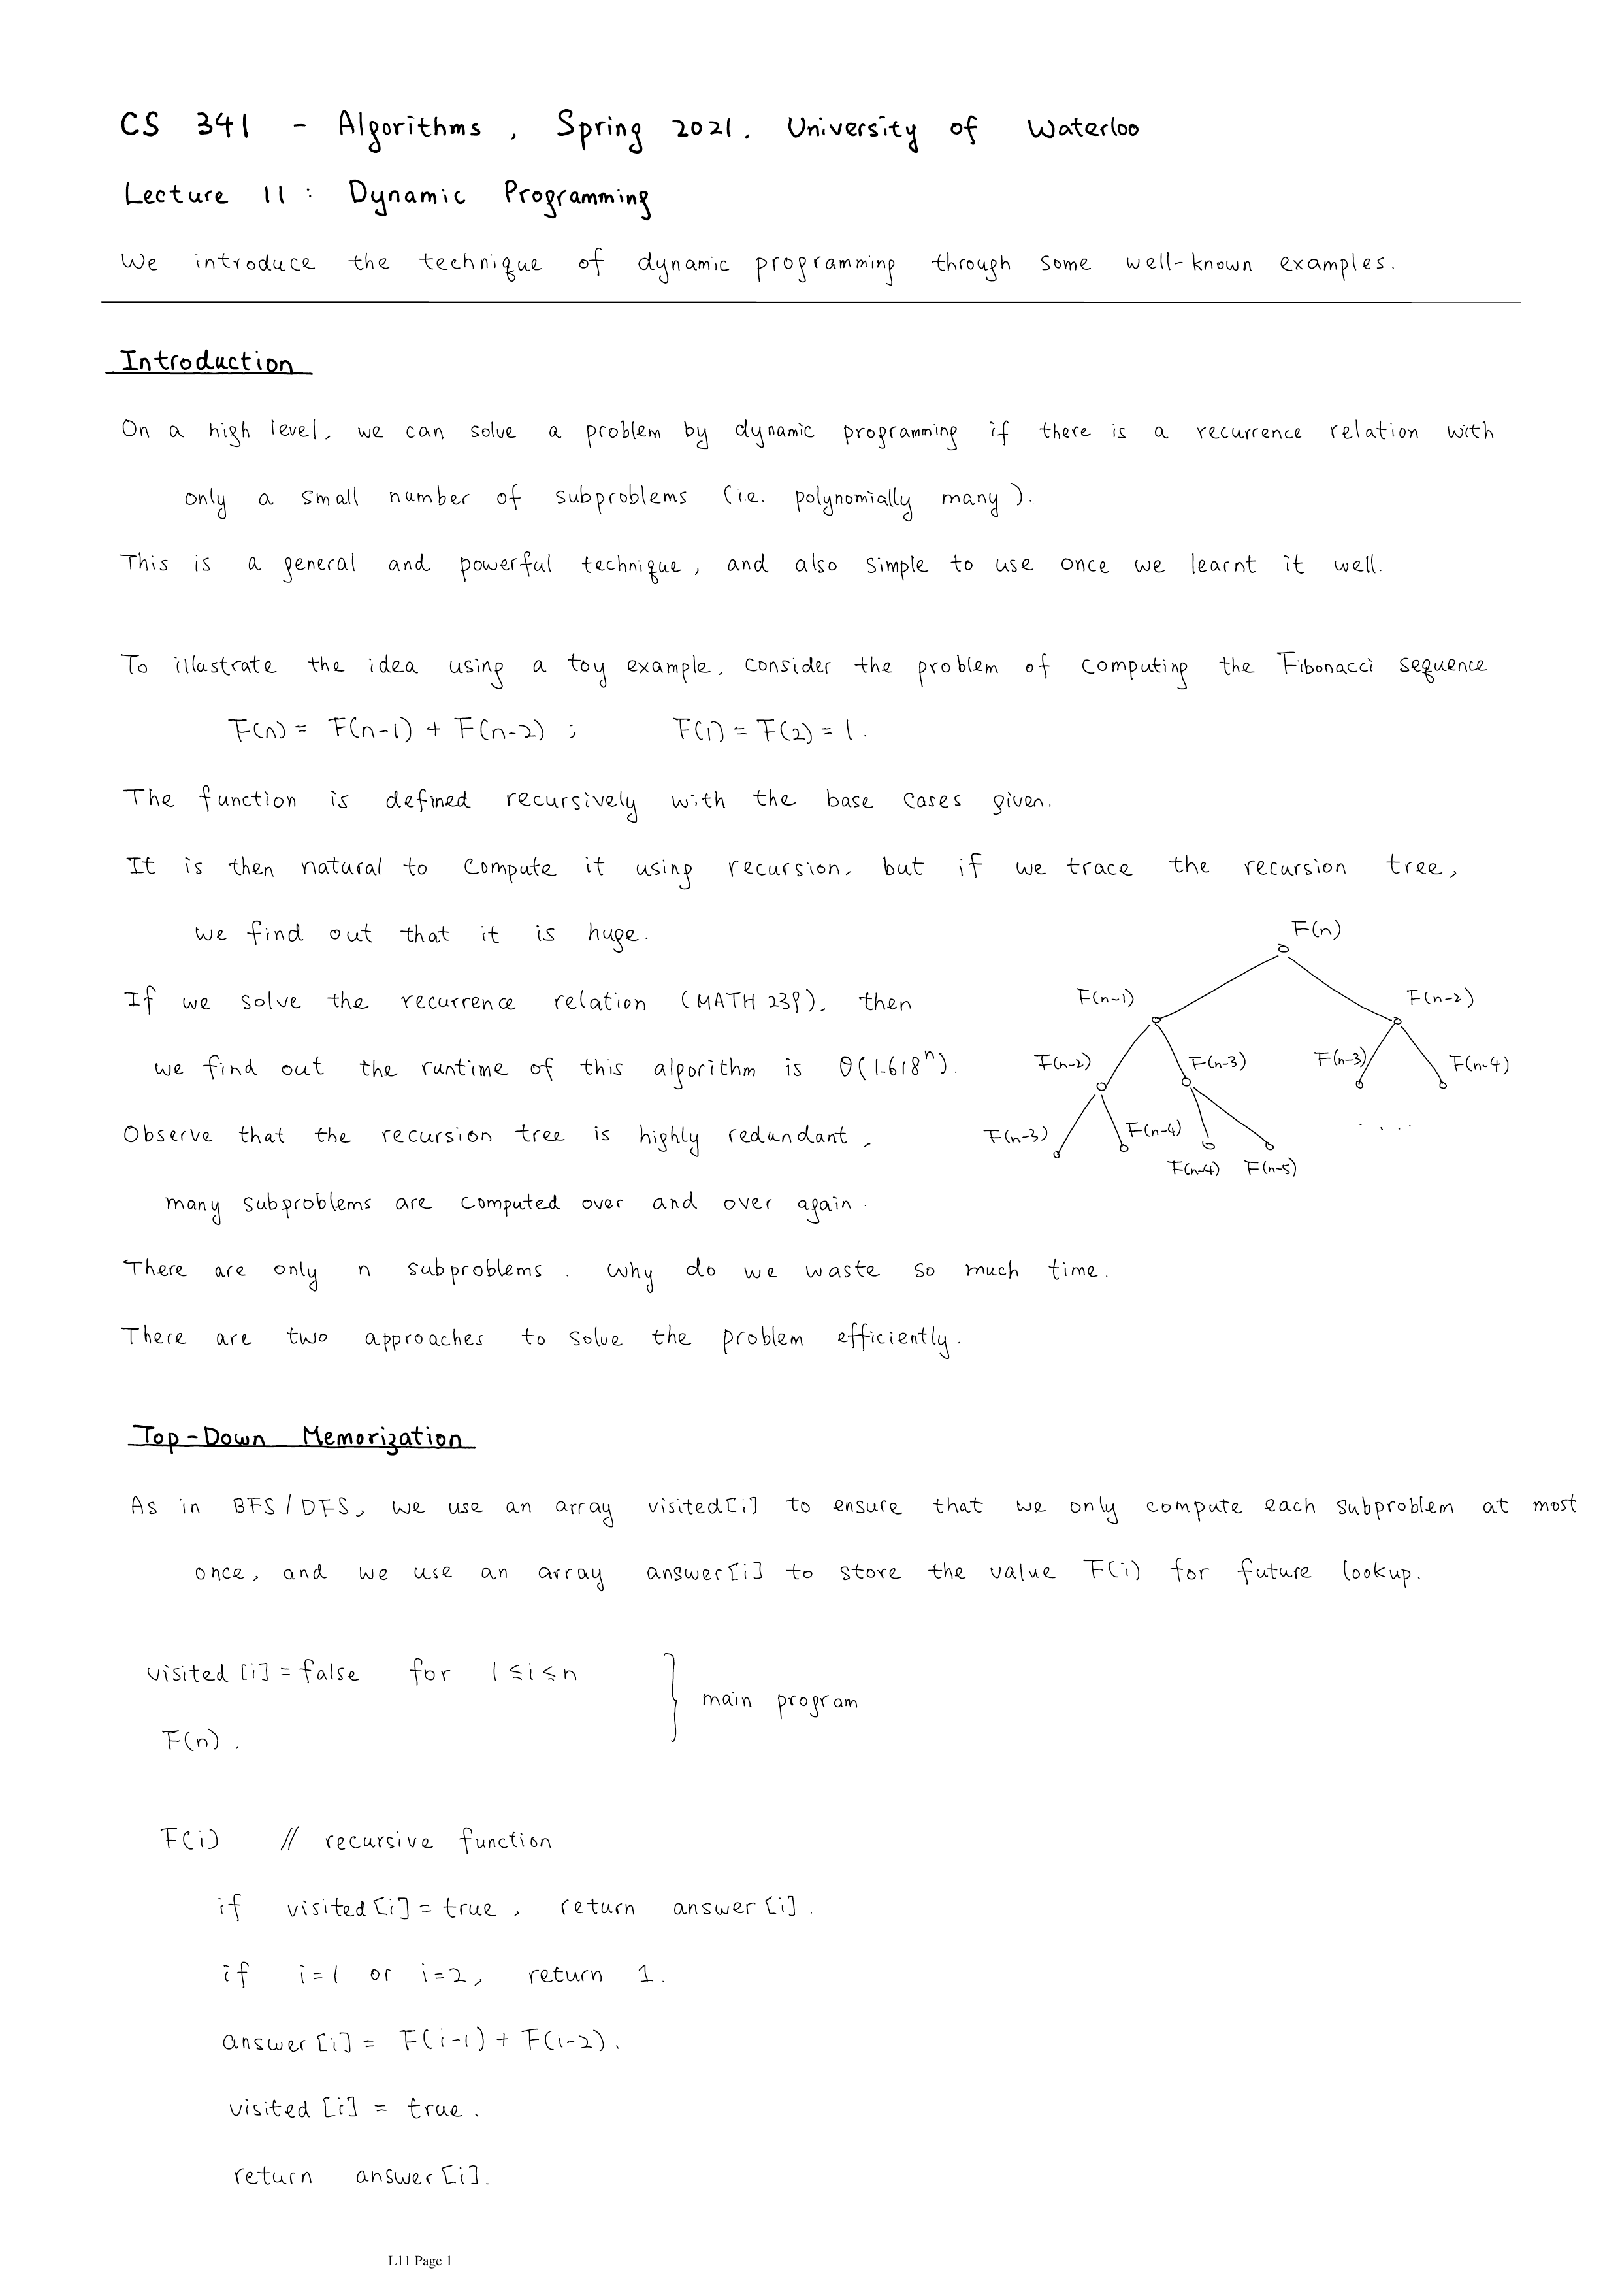 CS 341 - Algorithms, Spring 2021. University of Waterloo
Lecture 11: Dynamic Programming
We introduce the technique of dynamic programming through some well-known examples.
Introduction
On a high level, we can solve a problem by dynamic programming if there is a recurrence relation with
only a small number of subproblems (i.e. polynomially many).
This is a general and powerful technique, and also simple to use once we learnt it well.
To illustrate the idea using a toy example, consider the problem of computing the Fibonacci sequence
F(n) = F(n-1) + F(n-2) ; F(1) = F(2) = 1.
The function is defined recursively with the base cases given.
It is then natural to compute it using recursion, but if we trace the recursion tree,
we find out that it is huge.
If we solve the recurrence relation (MATH 239), then
we find out the runtime of this algorithm is Θ(1.618ⁿ).
Observe that the recursion tree is highly redundant,
many subproblems are computed over and over again.
F(n)
F(n-1) F(n-2)
F(n-2) F(n-3) F(n-3) F(n-4)
F(n-3) F(n-4) ....
F(n-4) F(n-5)
There are only n subproblems. Why do we waste so much time.
There are two approaches to solve the problem efficiently.
Top-Down Memorization
As in BFS/DFS, we use an array visited[i] to ensure that we only compute each subproblem at most
once, and we use an array answer[i] to store the value F(i) for future lookup.
visited [i] = false for 1 ≤ i ≤ n
F(n).
} main program
F(i) // recursive function
if visited [i] = true, return answer [i].
if i=1 or i=2, return 1.
answer [i] = F(i-1) + F(i-2).
visited [i] = true.
return answer [i].
L11 Page 1